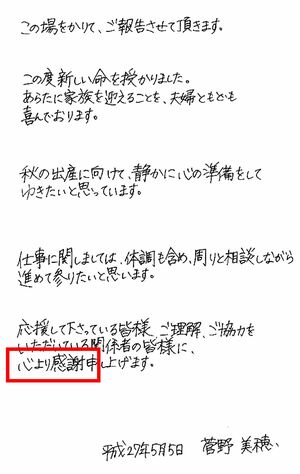 この場をかりて、ご報告させて頂きます。
この度新しい命を授かりました。
あらたに家族を迎えることを、夫婦ともども
喜んでおります。
秋の出産に向けて、静かに心の準備をして
ゆきたいと思っています。
仕事に関しましては、体調も含め、周りと相談しながら
進めて参りたいと思います。
応援して下さっている皆様、ご理解、ご協力を
いただいている関係者の皆様に、
心より感謝申し上げます。
平成27年5月5日 菅野 美穂